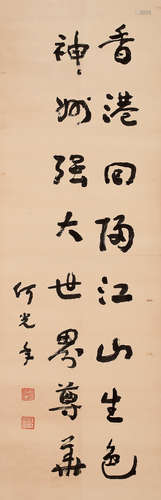 香港回归江山生色
神州强大世界尊华
何光年